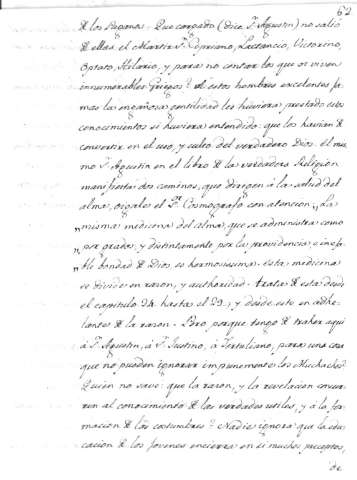 62
de los Paganos. Que cargado (dice S. Agustin) no salió
de ellas el Martir S. Cypriano, Lactancio, Victorino,
Optato, Hilario, y para no contar los que oy viven
innumerables Griegos? A estos hombres excelentes ja-
mas la engañosa gentilidad les huviera prestado estos
conocimientos si huviera entendido: que los havian de
convertir en el uso, y culto del verdadero Dios. El mis-
mo S. Agustin en el libro de la verdadera Religion
manifiesta dos caminos, que dirigen á la salud del
alma, oigales el Pe. Cosmografo con atencion. „La
„misma medicina del alma, que se administra como
„por grados, y distintamente por la providencia, e inefa-
„ble bondad de Dios, es hermosissima. esta medicina
se divide en razon, y authoridad. trata de esta desde
el capitulo 24. hasta el 29., y desde este en ade-
lantes de la razon. Pero porque tengo de traher aqui
á S. Agustin, á S. Justino, á Tertuliano, para una cosa
que no pueden ignorar impunemente los Muchachos?
Quien no save: que la razon, y la revelacion concur-
ren al conocimiento de las verdades utiles, y á la for-
macion de las costumbres? Nadie ignora que la edu-
cacion de los jovenes encierra en si muchos preceptos,
de